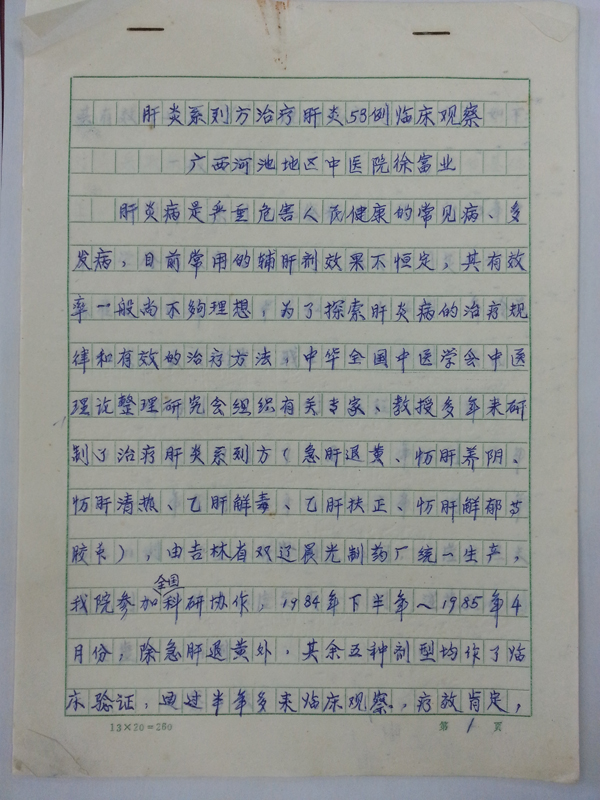 肝炎系列方治疗肝炎53例临床观察
广西河池地区中医院徐富业
肝炎病是严重危害人民健康的常见病、多
发病，目前常用的辅肝剂效果不恒定，其有效
率一般尚不够理想，为了探索肝炎病的治疗规
律和有效的治疗方法，中华全国中医学会中医
理论整理研究会组织有关专家、教授多年来研
制了治疗肝炎系列方（急肝退黄、慢肝养阴、
慢肝清热、乙肝解毒、乙肝扶正、慢肝解郁等
胶囊），由吉林省双辽晨光制药厂统一生产，
我院参加全国科研协作，1984年下半年～1985年4
月份，除急肝退黄外，其余五种剂型均作了临
床验证，通过半年多来临床观察，疗效肯定，
13×20=260
第 1 页